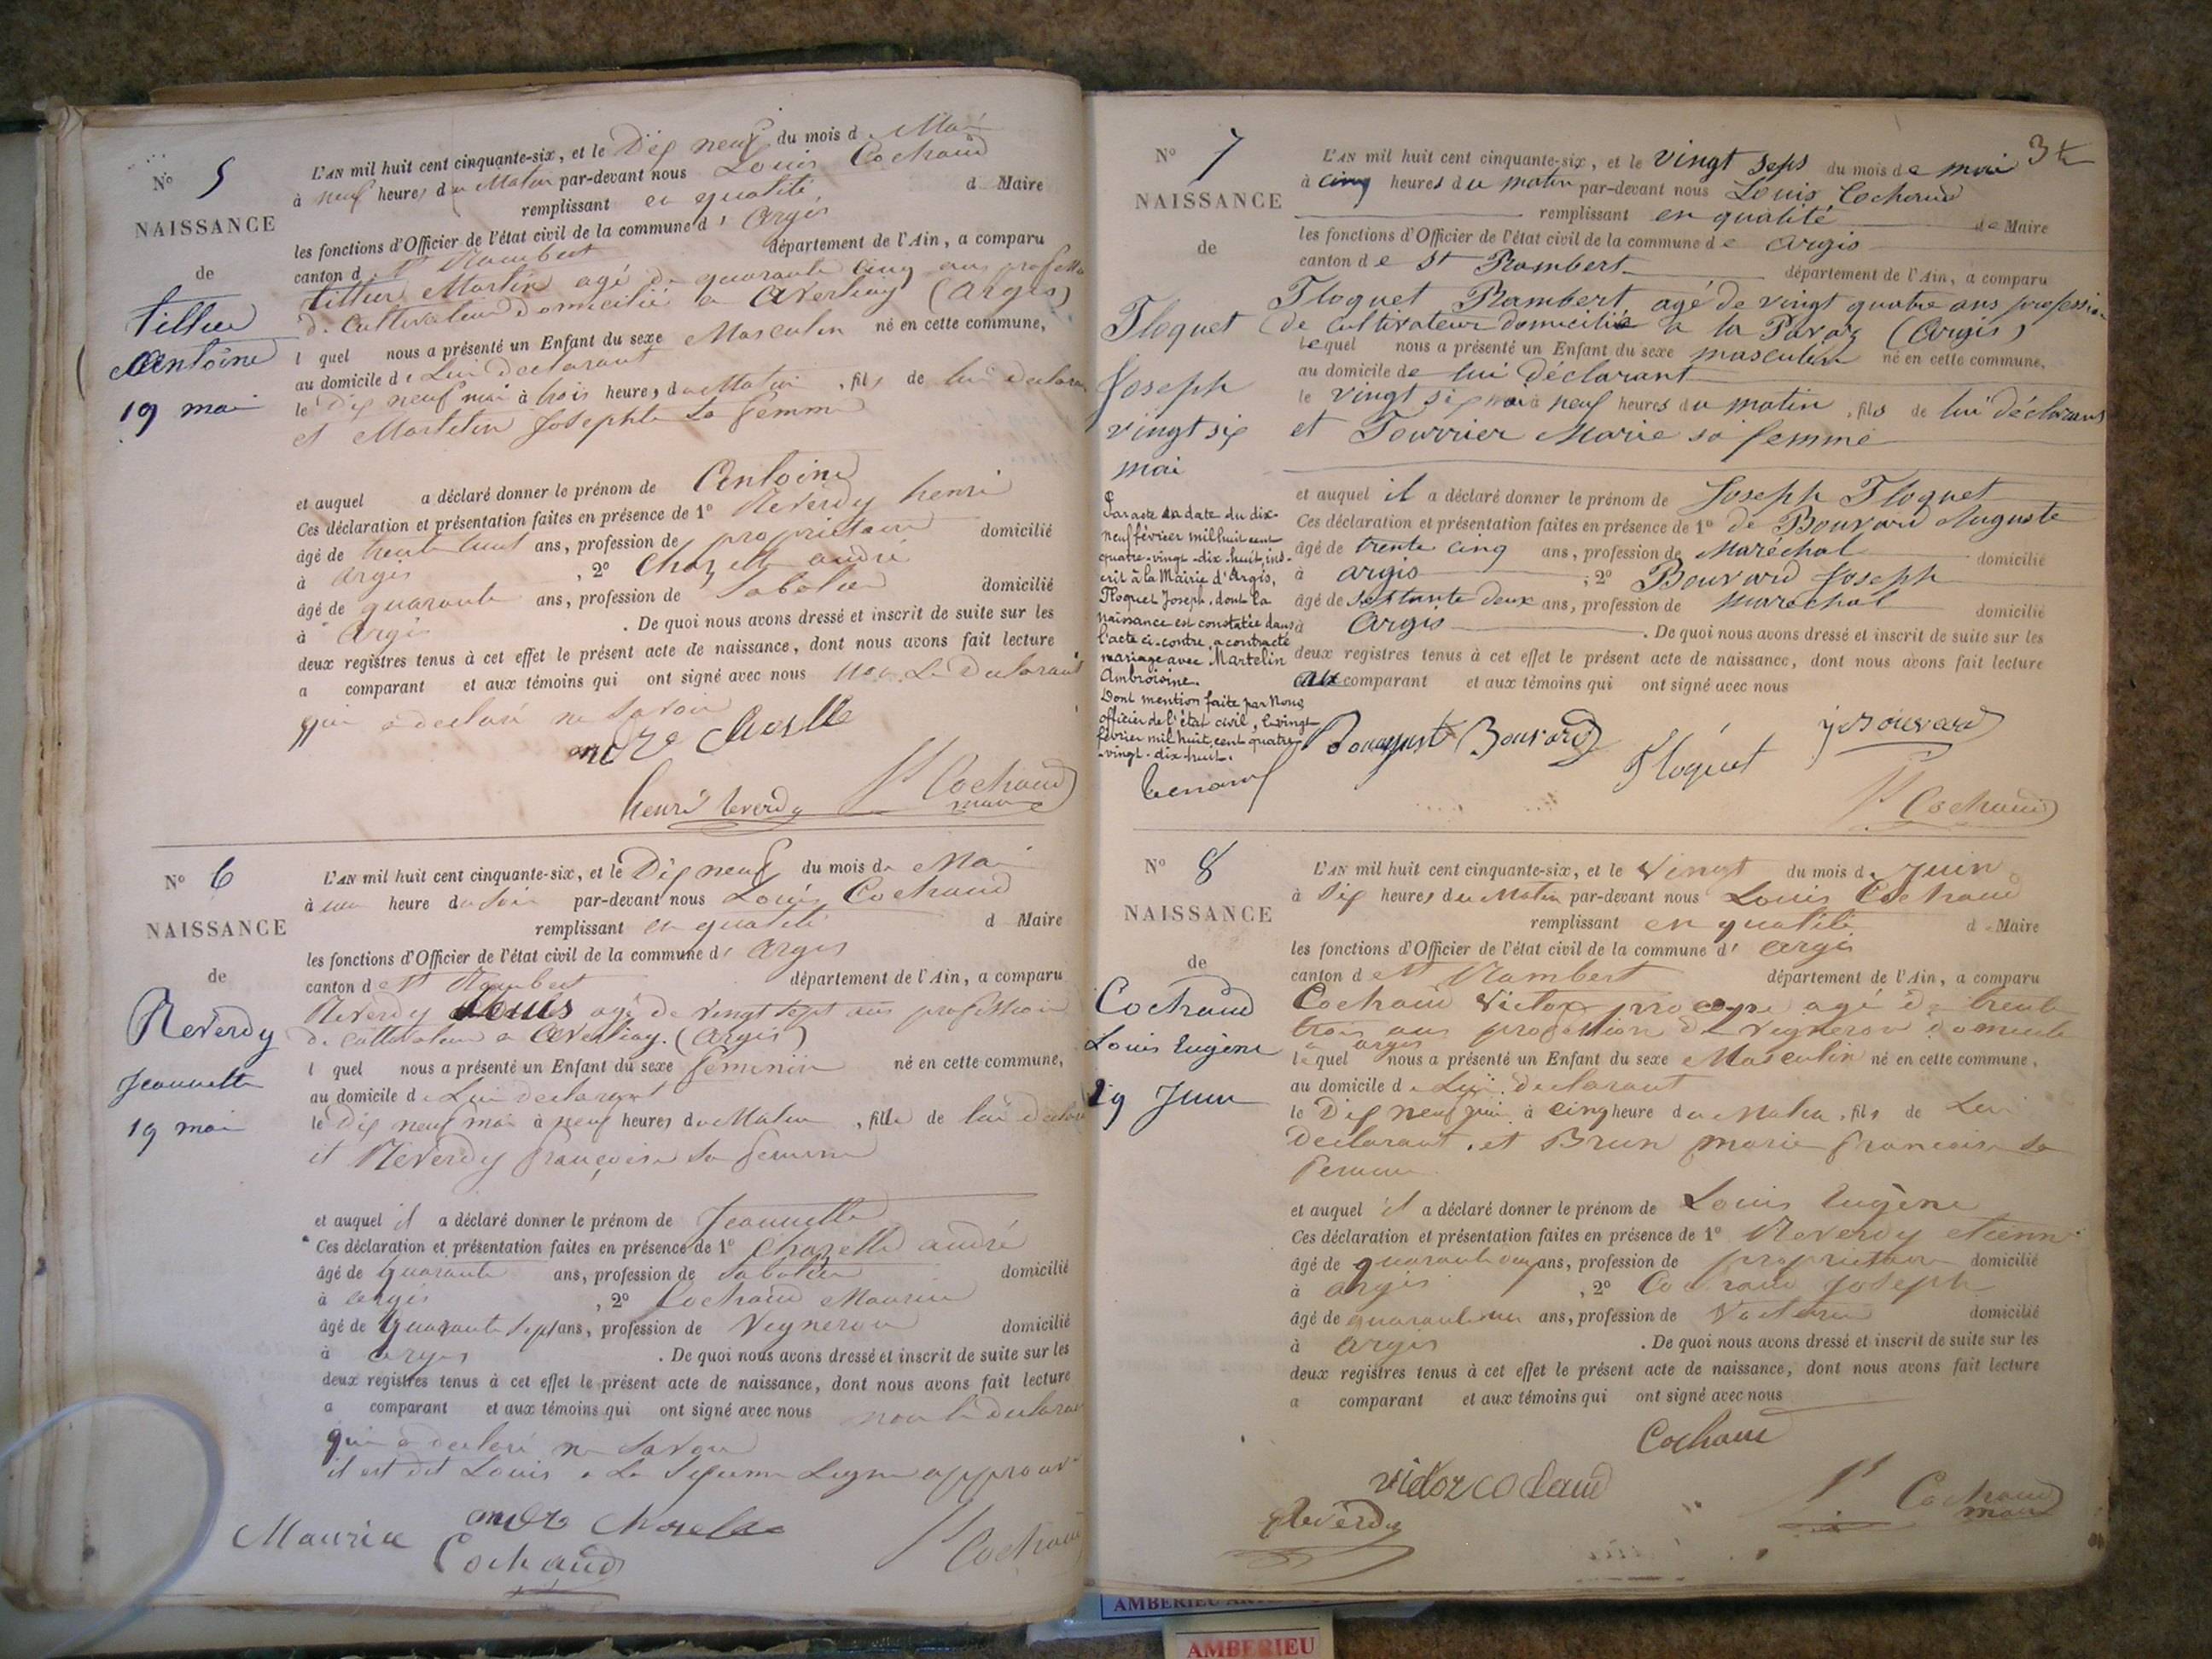 N° 5
NAISSANCE
de
Tillier
Antoine
19 mai
L'AN mil huit cent cinquante-six, et le Dix neuf du mois de Mai
à neuf heures du Matin par-devant nous Louis Cochaud
remplissant en qualité d Maire
les fonctions d'Officier de l'état civil de la commune d' Argis
canton de St Rambert département de l'Ain, a comparu
tillier Martin agé de quarante cinq ans profession
de Cultivateur Domicilié a Averliaz (Argis)
l quel nous a présenté un Enfant du sexe Masculin né en cette commune,
au domicile de Lui declarant
le Dix neuf mai à trois heures du Matin, fils de lui declarant
et Martelin Josephte sa femme
et auquel a déclaré donner le prénom de Antoine
Ces déclaration et présentation faites en présence de 1° Reverdy henri
âgé de trente huit ans, profession de propriétaire domicilié
à Argis, 2° Chazelle andré
âgé de quarante ans, profession de Sabotier domicilié
à Argis. De quoi nous avons dressé et inscrit de suite sur les
deux registres tenus à cet effet le présent acte de naissance, dont nous avons fait lecture
a comparant et aux témoins qui ont signé avec nous non Le Declarant
qui a declaré ne Savoir
henri reverdy Ls Cochaud
maire
N° 6
NAISSANCE
de
Reverdy
Jeannette
19 mai
L'AN mil huit cent cinquante-six, et le Dix neuf du mois de Mai
à une heure du Soir par-devant nous Louis Cochaud
remplissant en qualité d Maire
les fonctions d'Officier de l'état civil de la commune d' Argis
canton de St Rambert département de l'Ain, a comparu
Reverdy Louis agé de vingt sept ans profession
de Cultivateur a Averliaz. (Argis)
l quel nous a présenté un Enfant du sexe féminin né en cette commune,
au domicile de Lui declarant
le Dix neuf mai à neuf heures du Matin, fille de lui declarant
et Reverdy françoise Sa femme
et auquel il a déclaré donner le prénom de Jeannette
Ces déclaration et présentation faites en présence de 1° Chazelle andré
âgé de quarante ans, profession de Sabotier domicilié
à argis, 2° Cochaud Maurice
âgé de Quarante Sept ans, profession de Vigneron domicilié
à argis. De quoi nous avons dressé et inscrit de suite sur les
deux registres tenus à cet effet le présent acte de naissance, dont nous avons fait lecture
a comparant et aux témoins qui ont signé avec nous non le declarant
qui a declaré ne Savoir
il est dit Louis a La Sixieme Ligne approuvé
Maurice Cochaud Ls Cochaud
N° 7
3
NAISSANCE
de
Floquet
Joseph
vingt six
mai
Par acte en date du dix-
neuf février mil huit cent
quatre-vingt-dix-huit, ins-
crit à la Mairie d'Argis,
Floquet Joseph, dont la
naissance est constatée dans
l'acte ci-contre, a contracté
mariage avec Martelin
Ambroisine.
Dont mention faite par Nous
officier de l'état civil, le vingt
février mil huit cent quatre-
-vingt-dix-huit.
L'AN mil huit cent cinquante-six, et le vingt sept du mois de mai
à cinq heures du matin par-devant nous Louis Cochaud
remplissant en qualité de Maire
les fonctions d'Officier de l'état civil de la commune de argis
canton de St Rambert département de l'Ain, a comparu
Floquet Rambert agé de vingt quatre ans profession
de cultivateur domicilié à la Pavaz (Argis)
lequel nous a présenté un Enfant du sexe masculin né en cette commune,
au domicile de lui déclarant
le vingt six mai à neuf heures du matin, fils de lui déclarant
et Tourrier Marie sa femme
et auquel il a déclaré donner le prénom de Joseph Floquet
Ces déclaration et présentation faites en présence de 1° de Bouvard Auguste
âgé de trente cinq ans, profession de Maréchal domicilié
à argis, 2° Bouvard Joseph
âgé de septante deux ans, profession de maréchal domicilié
à Argis. De quoi nous avons dressé et inscrit de suite sur les
deux registres tenus à cet effet le présent acte de naissance, dont nous avons fait lecture
au comparant et aux témoins qui ont signé avec nous
Bouvard Floquet j Bouvard
Ls Cochaud
N° 8
NAISSANCE
de
Cochaud
Louis Eugène
19 Juin
L'AN mil huit cent cinquante-six, et le Vingt du mois de Juin
à Dix heures du Matin par-devant nous Louis Cochaud
remplissant en qualité d Maire
les fonctions d'Officier de l'état civil de la commune d' argis
canton de St Rambert département de l'Ain, a comparu
Cochaud Victor agé de trente
trois ans profession de Vigneron domicilié
a argis
lequel nous a présenté un Enfant du sexe Masculin né en cette commune,
au domicile de Lui declarant
le Dix neuf juin à cinq heure du Matin, fils de Lui
declarant, et Brun marie françoise sa
femme
et auquel il a déclaré donner le prénom de Louis Eugène
Ces déclaration et présentation faites en présence de 1° Reverdy etienne
âgé de quarante ans, profession de propriétaire domicilié
à argis, 2° Cochaud Joseph
âgé de quarante un ans, profession de domicilié
à argis. De quoi nous avons dressé et inscrit de suite sur les
deux registres tenus à cet effet le présent acte de naissance, dont nous avons fait lecture
a comparant et aux témoins qui ont signé avec nous
Cochaud
victor cochaud Ls Cochaud
maire
Reverdy
AMBERIEU
AMBERIEU